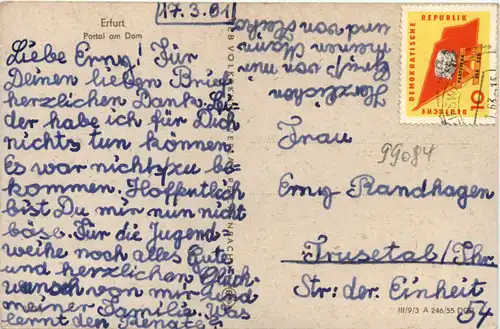 Erfurt
Portal am Dom
17.3.61
Liebe Erny! Für
Deinen lieben Brief
herzlichen Dank. Lei-
der habe ich für Dich
nichts tun können.
Es war nichts zu be-
kommen. Hoffentlich
bist Du mir nun nicht
böse. Für die Jugend-
weihe noch alles Gute
und herzlichen Glück-
wunsch von mir und
meiner Familie. Was
lernt den Renate?
Herzlichen
Gruß von mir
meinen Mann
und von
DEUTSCHE DEMOKRATISCHE REPUBLIK
10
99084
Frau
Erny Randhagen
Trusetal/Thr.
Str: der Einheit
54
III/9/3 A 246/55 DDR